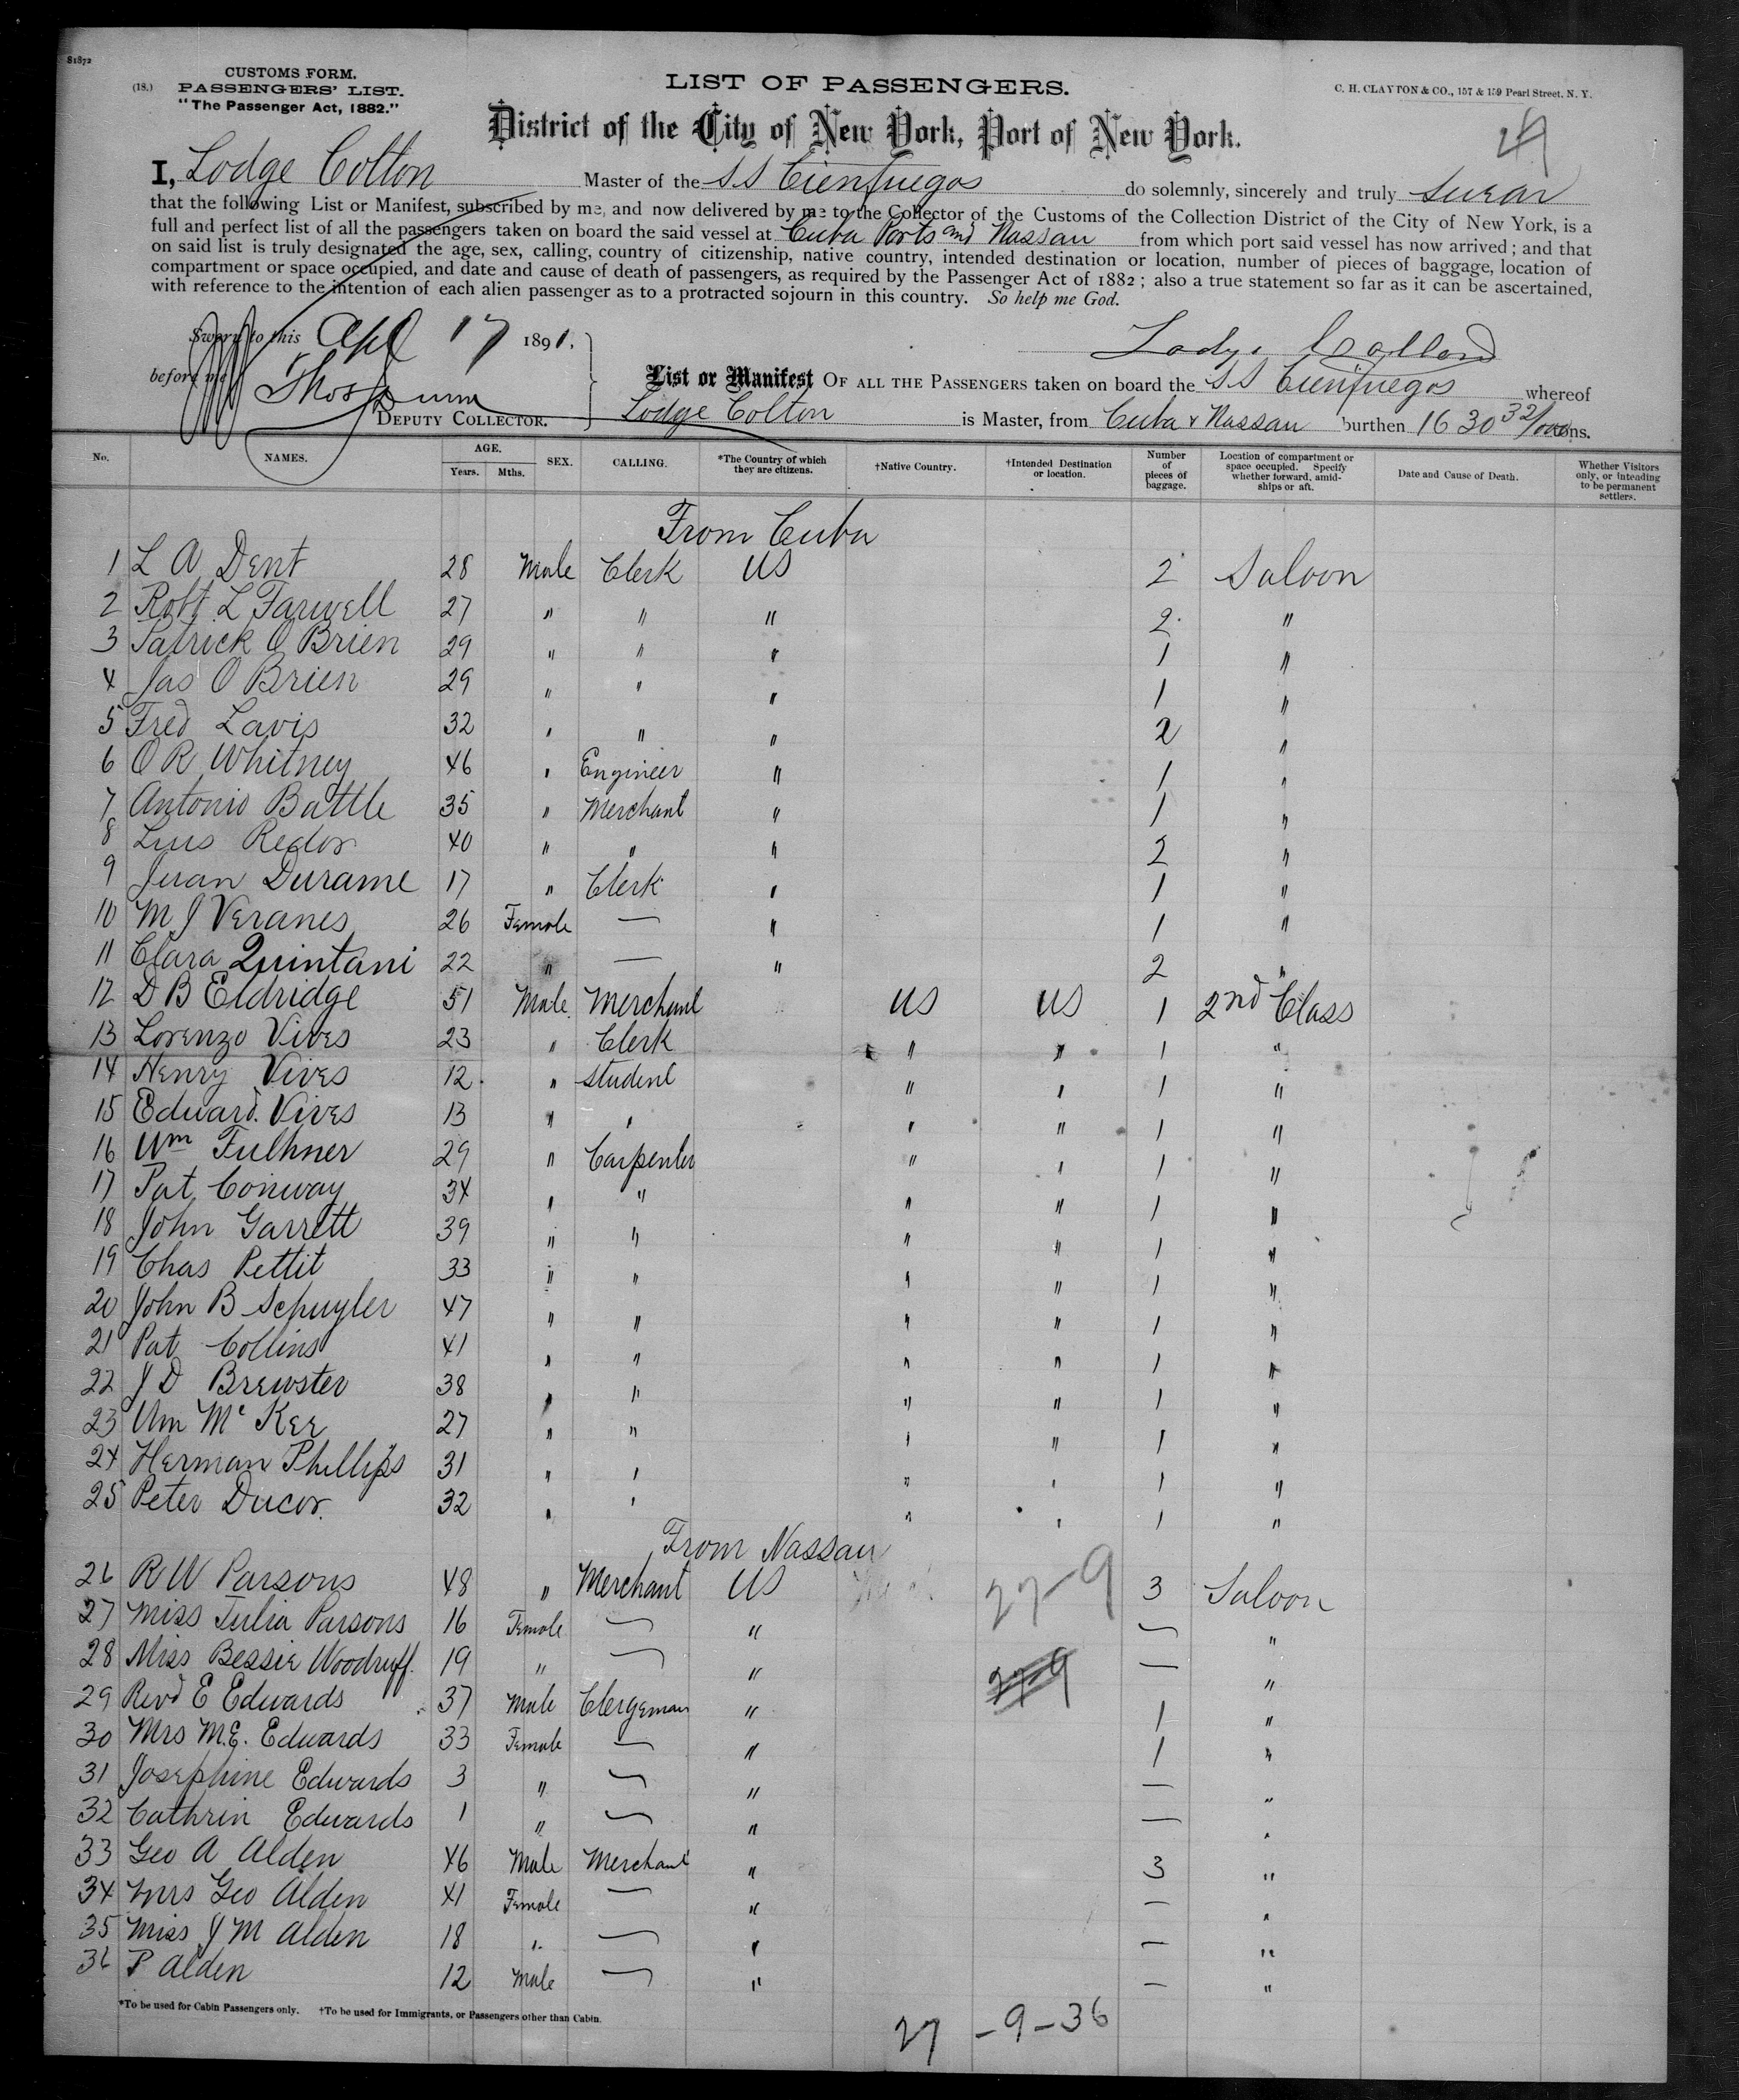 81872
(18.)
CUSTOMS FORM.
PASSENGERS' LIST.
"The Passenger Act, 1882."
LIST OF PASSENGERS.
C. H. CLAYTON & CO., 157 & 159 Pearl Street, N. Y.
District of the City of New York, Port of New York.
I, Lodge Colton Master of the SS Cienfuegos do solemnly, sincerely and truly Swear
that the following List or Manifest, subscribed by me, and now delivered by me to the Collector of the Customs of the Collection District of the City of New York, is a
full and perfect list of all the passengers taken on board the said vessel at Cuba Ports and Nassau from which port said vessel has now arrived; and that
on said list is truly designated the age, sex, calling, country of citizenship, native country, intended destination or location, number of pieces of baggage, location of
compartment or space occupied, and date and cause of death of passengers, as required by the Passenger Act of 1882; also a true statement so far as it can be ascertained,
with reference to the intention of each alien passenger as to a protracted sojourn in this country. So help me God.
Sworn to this Apl 17 1891.
before me Thos Dunn
DEPUTY COLLECTOR.
Lodge Colton
List or Manifest OF ALL THE PASSENGERS taken on board the SS Cienfuegos whereof
Lodge Colton is Master, from Cuba & Nassau burthen 1630 32/100 tons.
No. NAMES. AGE. Years. Mths. SEX. CALLING. *The Country of which they are citizens. †Native Country. †Intended Destination or location. Number of pieces of baggage. Location of compartment or space occupied. Specify whether forward, amidships or aft. Date and Cause of Death. Whether Visitors only, or intending to be permanent settlers.
From Cuba
1 L A Dent 28 Male Clerk US 2 Saloon
2 Robt L Farwell 27 " " " 2 "
3 Patrick O Brien 29 " " " 1 "
4 Jas O Brien 29 " " " 1 "
5 Fred Lavis 32 " " " 2 "
6 O R Whitney 46 " Engineer " 1 "
7 Antonio Battle 35 " Merchant " 1 "
8 Luis Redor 40 " " " 2 "
9 Juan Durame 17 " Clerk " 1 "
10 M J Veranes 26 Female — " 1 "
11 Clara Quintani 22 " — " 2 "
12 D B Eldridge 51 Male Merchant US US 1 2nd Class
13 Lorenzo Vives 23 " Clerk " " 1 "
14 Henry Vives 12 " Student " " 1 "
15 Edward Vives 13 " " " " 1 "
16 Wm Fulhner 29 " Carpenter " " 1 "
17 Pat Conway 34 " " " " 1 "
18 John Garrett 39 " " " " 1 "
19 Chas Pettit 33 " " " " 1 "
20 John B Schuyler 47 " " " " 1 "
21 Pat Collins 41 " " " " 1 "
22 J D Brewster 38 " " " " 1 "
23 Wm Mc Ker 27 " " " " 1 "
24 Herman Phillips 31 " " " " 1 "
25 Peter Ducor 32 " " " " 1 "
From Nassau
26 R W Parsons 48 " Merchant US 27-9 3 Saloon
27 Miss Julia Parsons 16 Female — " — "
28 Miss Bessie Woodruff 19 " — " 27-9 — "
29 Revd E Edwards 37 Male Clergeman " 1 "
30 Mrs M.E. Edwards 33 Female — " 1 "
31 Josephine Edwards 3 " — " — "
32 Cathrin Edwards 1 " — " — "
33 Geo A Alden 46 Male Merchant " 3 "
34 Mrs Geo Alden 41 Female — " — "
35 Miss J M Alden 18 " — " — "
36 P Alden 12 Male — " — "
*To be used for Cabin Passengers only. †To be used for Immigrants, or Passengers other than Cabin.
27 - 9 - 36